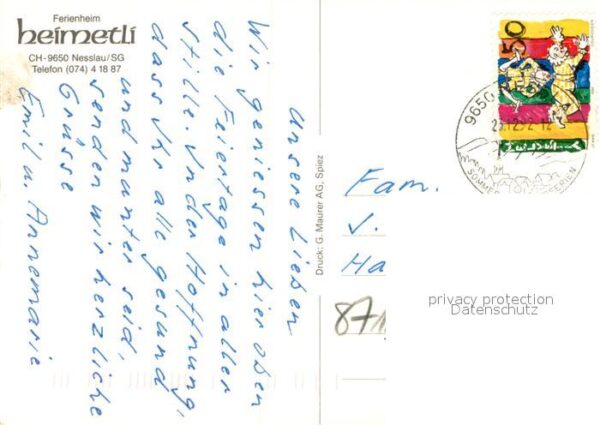 Ferienheim
heimetli
CH-9650 Nesslau/SG
Telefon (074) 4 18 87
unsere Lieben
Wir geniessen hier oben
die Feiertage in aller
Stille. In der Hoffnung,
dass Ihr alle gesund
und munter seid,
senden wir herzliche
Grüsse
Emil u. Annemarie
Druck: G. Maurer AG, Spiez
50
9650
Fam.
J.
Ha
privacy protection
Datenschutz